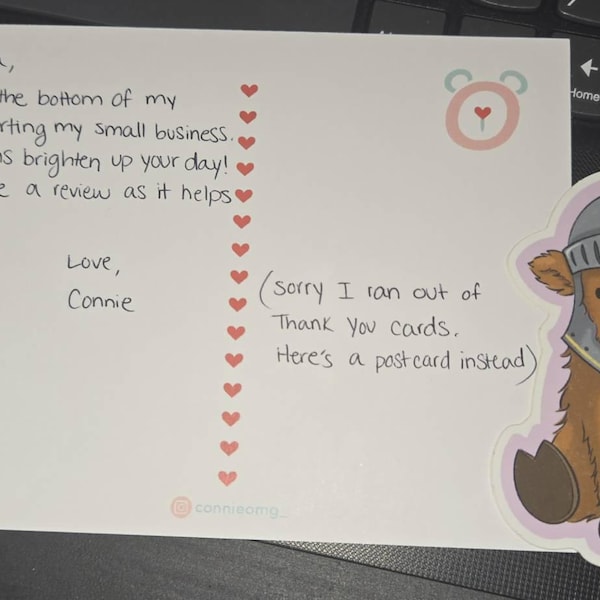 the bottom of my
rting my small business.
s brighten up your day!
a review as it helps
Love,
Connie
(Sorry I ran out of
Thank You cards.
Here's a postcard instead)
connieomg_
Home